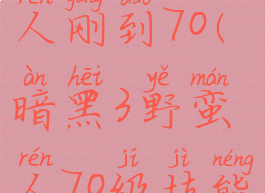 rén gāng dào
人刚到70(
àn hēi yě mán
暗黑3野蛮
rén jí jì néng
人70级技能